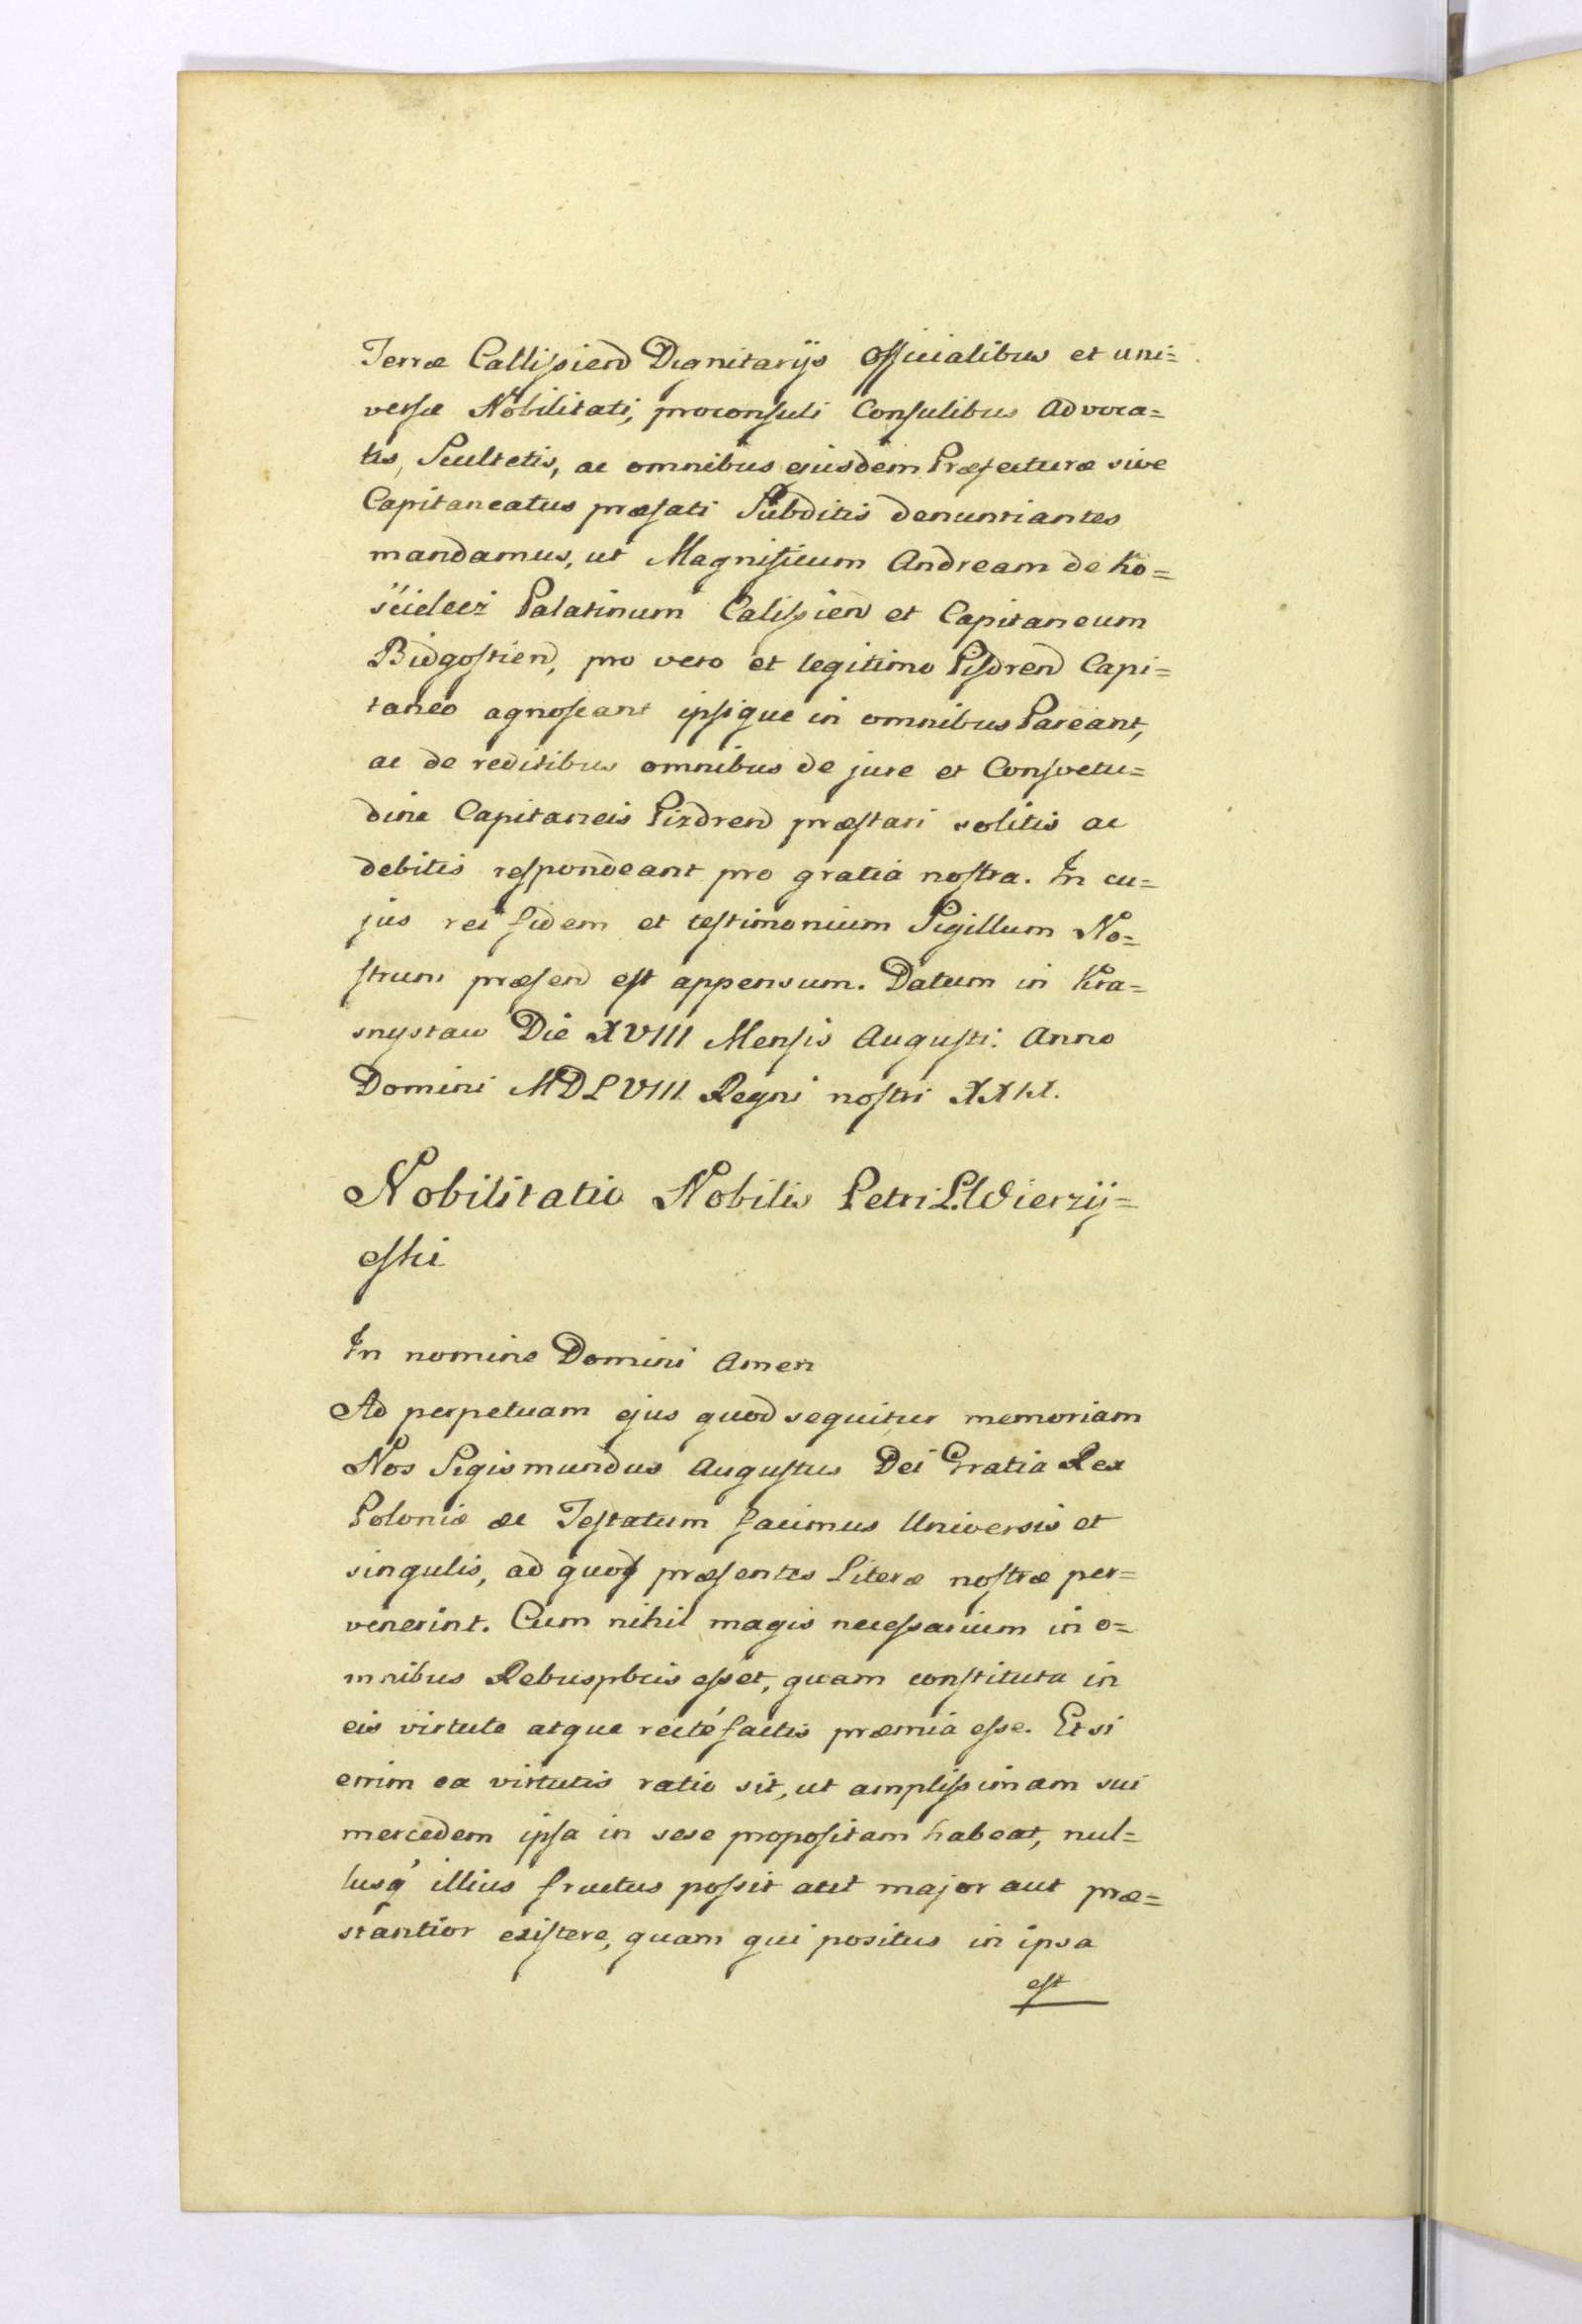 Terræ Callisien Dignitarijs Officialibus et uni=
versæ Nobilitati, proconsuli Consulibus Advoca=
tis, Scultetis, ac omnibus ejusdem Præfecturæ sive
Capitaneatus præfati Subditis denuntiantes
mandamus, ut Magnificum Andream de Ko=
scielecz Palatinum Calissien et Capitaneum
Bidgostien, pro vero et legitimo Pisdren Capi=
taneo agnoscant ipsique in omnibus Pareant,
ac de reditibus omnibus de jure et Consvetu=
dine Capitaneis Pizdren præstari solitis ac
debitis respondeant pro gratia nostra. In cu=
jus rei fidem et testimonium Sigillum No=
strum præsen est appensum. Datum in Kra=
snystaw Die XVIII Mensis Augusti. Anno
Domini MDLVIII Regni nostri
Nobilitatio Nobilis Petri L. Wierzij=
eski
In nomine Domini Amen
Ad perpetuam ejus quod sequitur memoriam
Nos Sigismundus Augustus Dei Gratia Rex
Poloniæ &c Testatum facimus Universis et
singulis, ad quos præsentes Literæ nostræ per=
venerint. Cum nihil magis necessarium in o=
mnibus Rebuspbcis esset, quam constituta in
eis virtute atque recté factis præmia esse. Etsi
enim ea virtutis ratio sit, ut amplissimam sui
mercedem ipsa in sese propositam habeat, nul=
lusq́ illius fructus possit aut major aut præ=
stantior existere, quam qui positus in ipsa
est